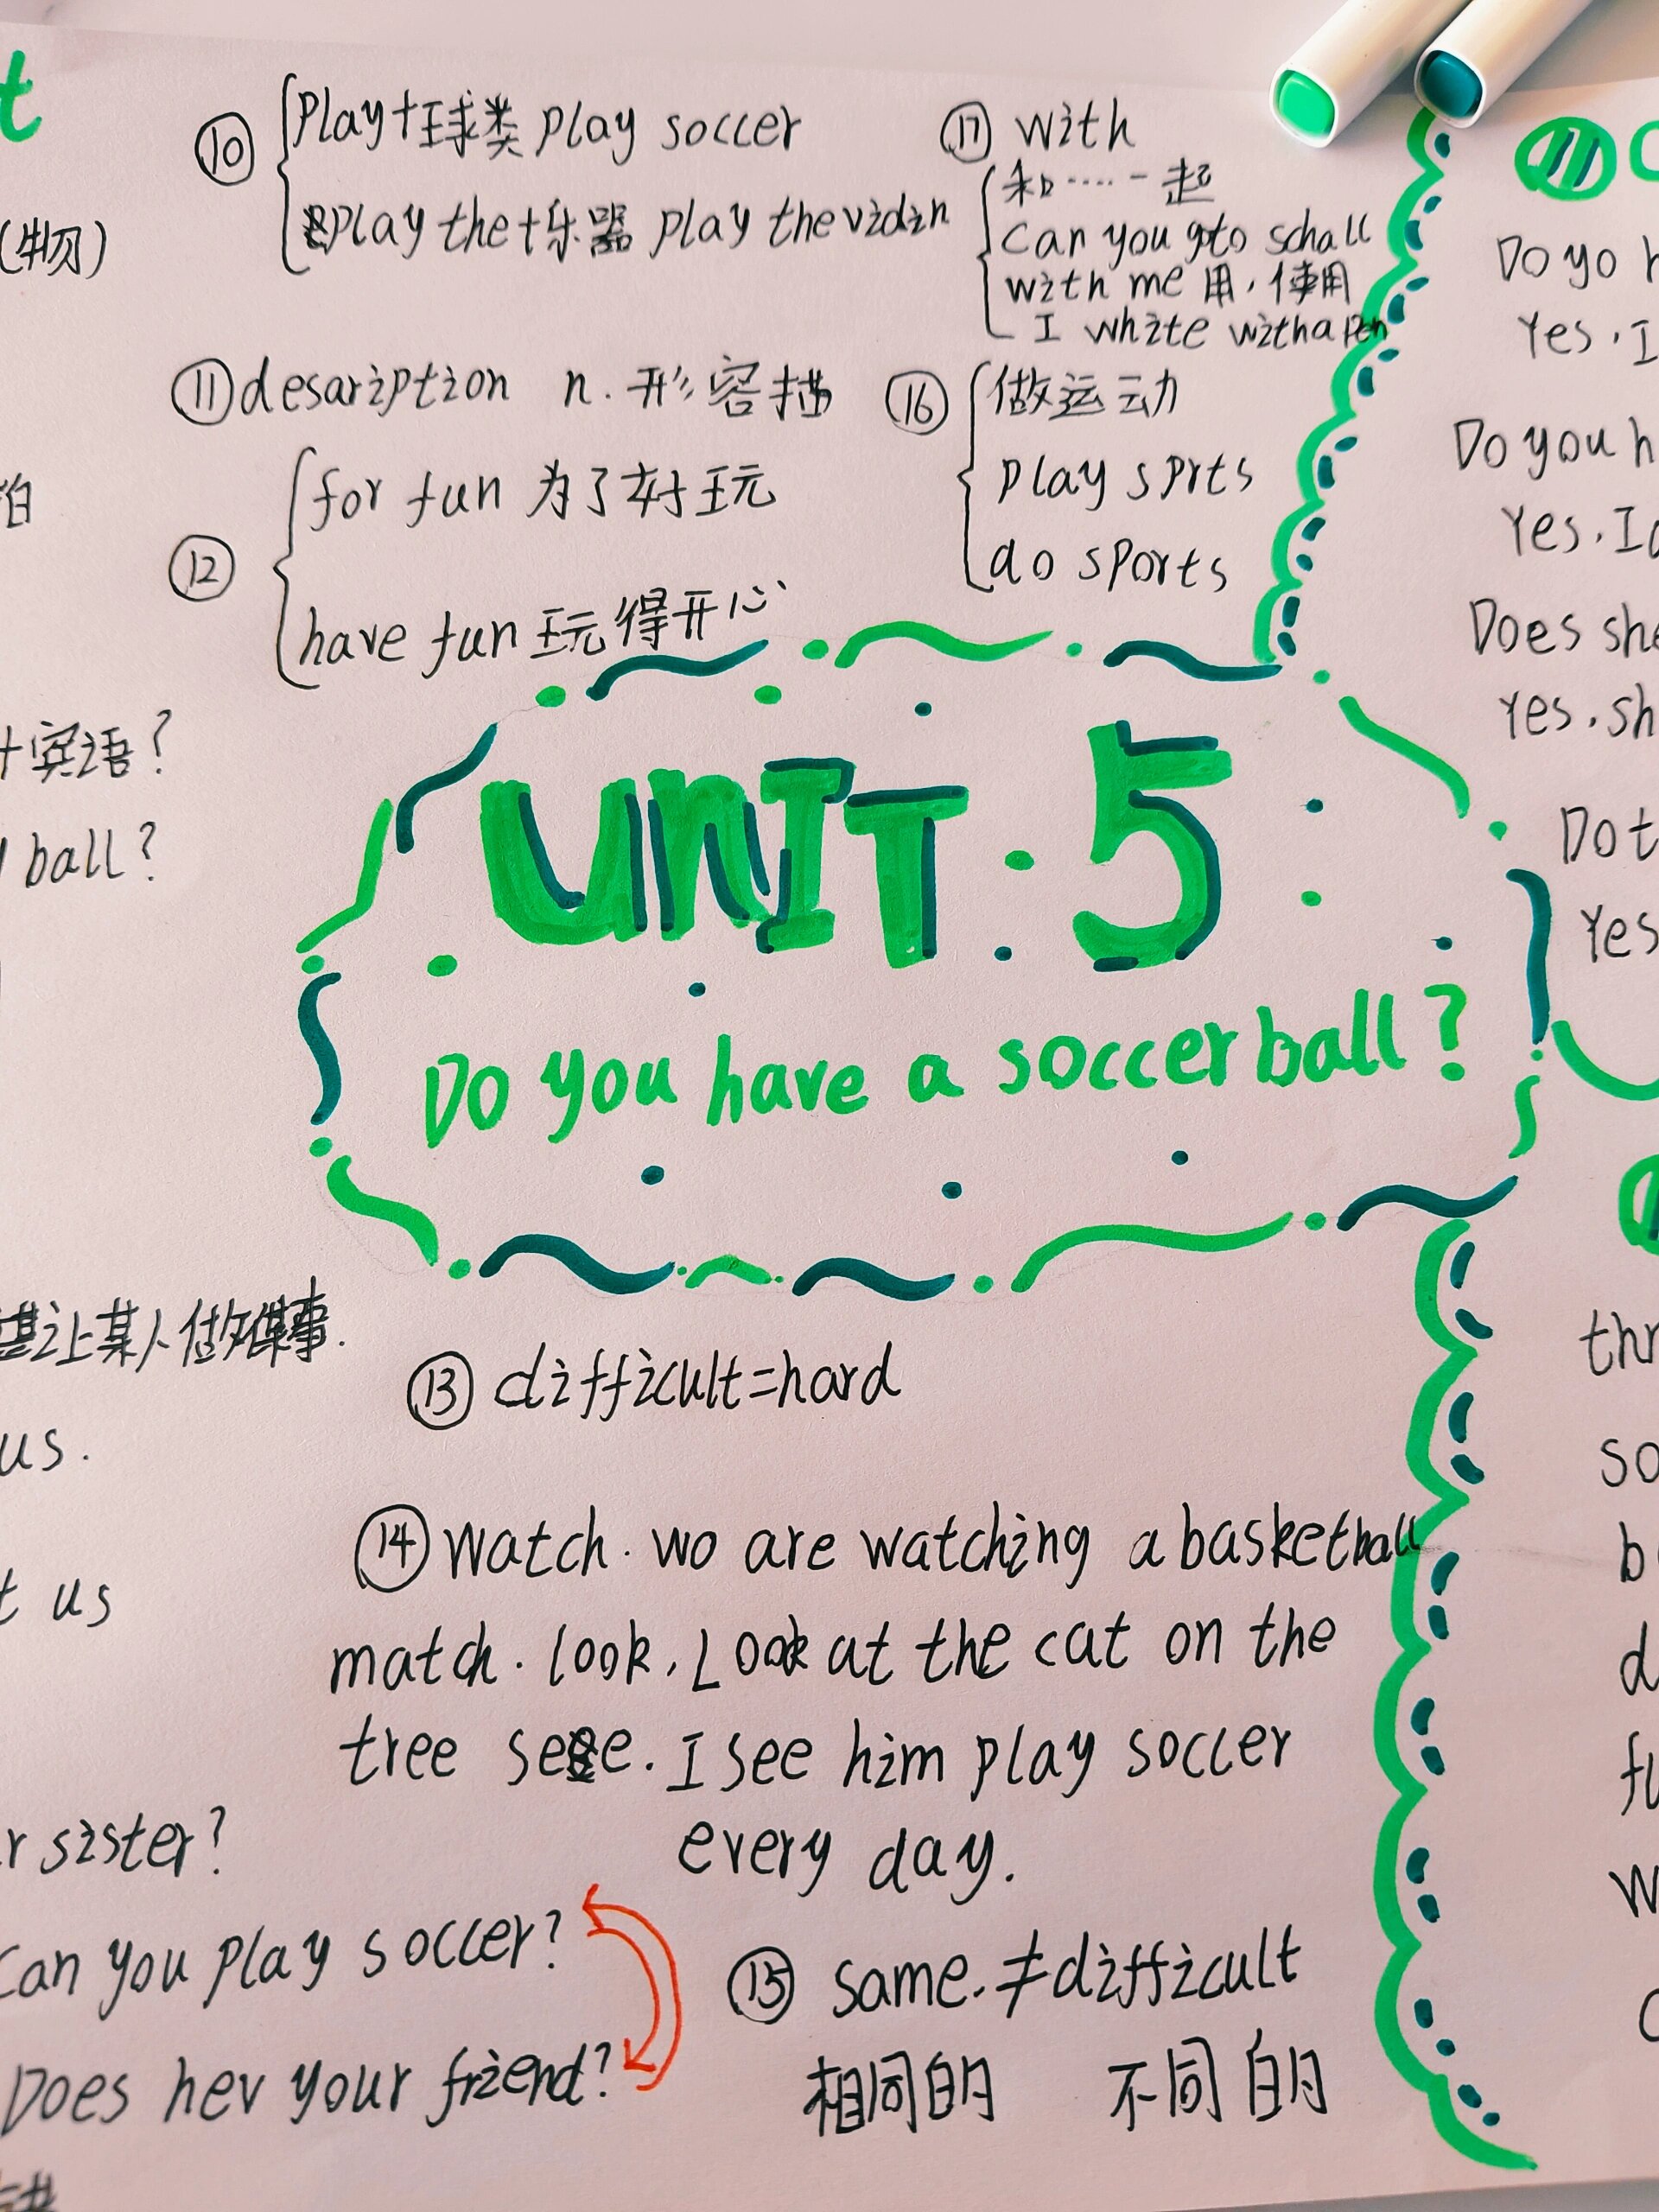 t
(物)
怕
十宾语?
ball?
让某人做某事.
us.
t us
r sister?
Can you play soccer?
Does hev your friend?
⑩ Play+球类 play soccer
play the+乐器 play the vidin
⑪ desariptzion n. 形容描
⑫ for fun 为了好玩
have fun 玩得开心
⑰ with
和……一起
Can you goto schall
with me 用,使用
I white with a Pen
⑯ 做运动
play sprts
do sports
UNIT: 5
Do you have a soccer ball?
⑬ difficult=hard
⑭ Watch. wo are watching a basketball
match. look. Look at the cat on the
tree see. I see him play soccer
every day.
⑮ same. ≠difficult
相同的 不同的
Do yo h
Yes, I
Do you h
Yes, I d
Does she
Yes, sh
Do t
Yes
thr
so
b
d
fu
W